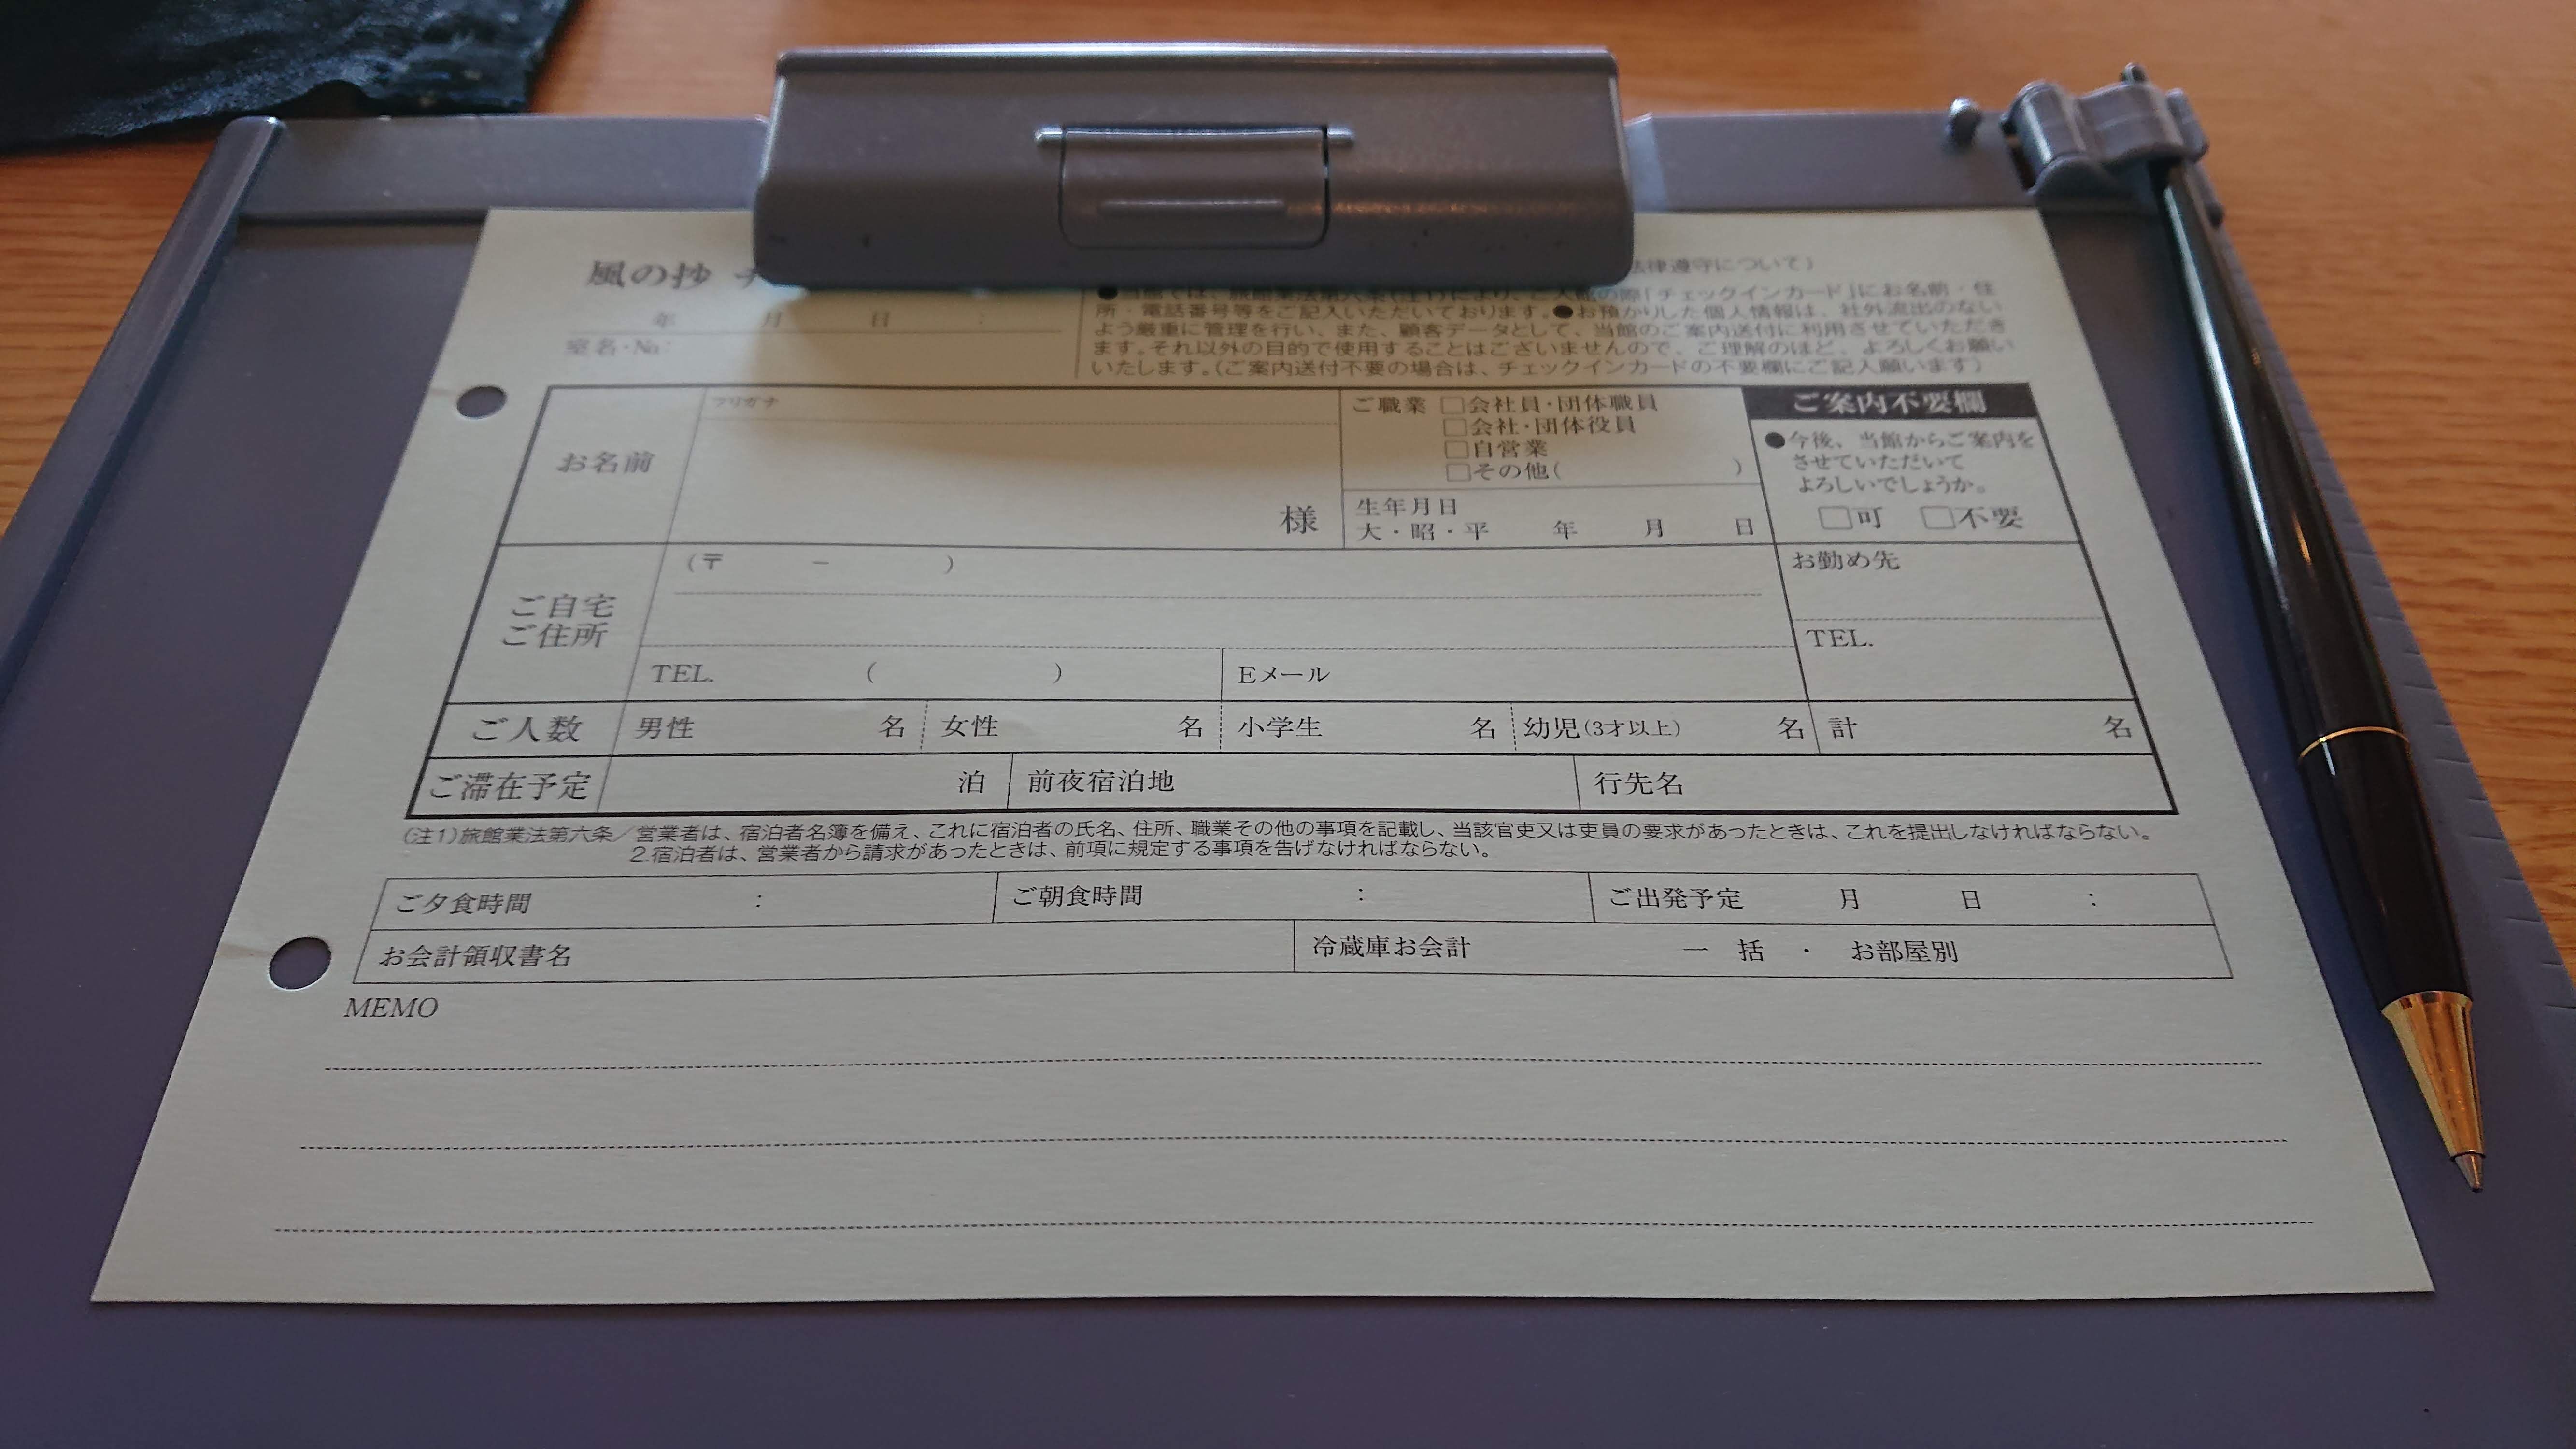 風の抄
法律遵守について)
年 月 日 :
室名・No.
の際「チェックインカード」にお名前・住
所・電話番号等をご記入いただいております。●お預かりした個人情報は、社外流出のない
よう厳重に管理を行い、また、顧客データとして、当館のご案内送付に利用させていただき
ます。それ以外の目的で使用することはございませんので、ご理解のほど、よろしくお願い
いたします。(ご案内送付不要の場合は、チェックインカードの不要欄にご記入願います)
お名前
フリガナ
様
ご職業 □会社員・団体職員
□会社・団体役員
□自営業
□その他( )
生年月日
大・昭・平 年 月 日
ご案内不要欄
●今後、当館からご案内を
させていただいて
よろしいでしょうか。
□可 □不要
ご自宅
ご住所
(〒 − )
TEL. ( )
Eメール
お勤め先
TEL.
ご人数 男性 名 女性 名 小学生 名 幼児(3才以上) 名 計 名
ご滞在予定 泊 前夜宿泊地 行先名
(注1)旅館業法第六条／営業者は、宿泊者名簿を備え、これに宿泊者の氏名、住所、職業その他の事項を記載し、当該官吏又は吏員の要求があったときは、これを提出しなければならない。
2.宿泊者は、営業者から請求があったときは、前項に規定する事項を告げなければならない。
ご夕食時間 : ご朝食時間 : ご出発予定 月 日 :
お会計領収書名 冷蔵庫お会計 一 括 ・ お部屋別
MEMO